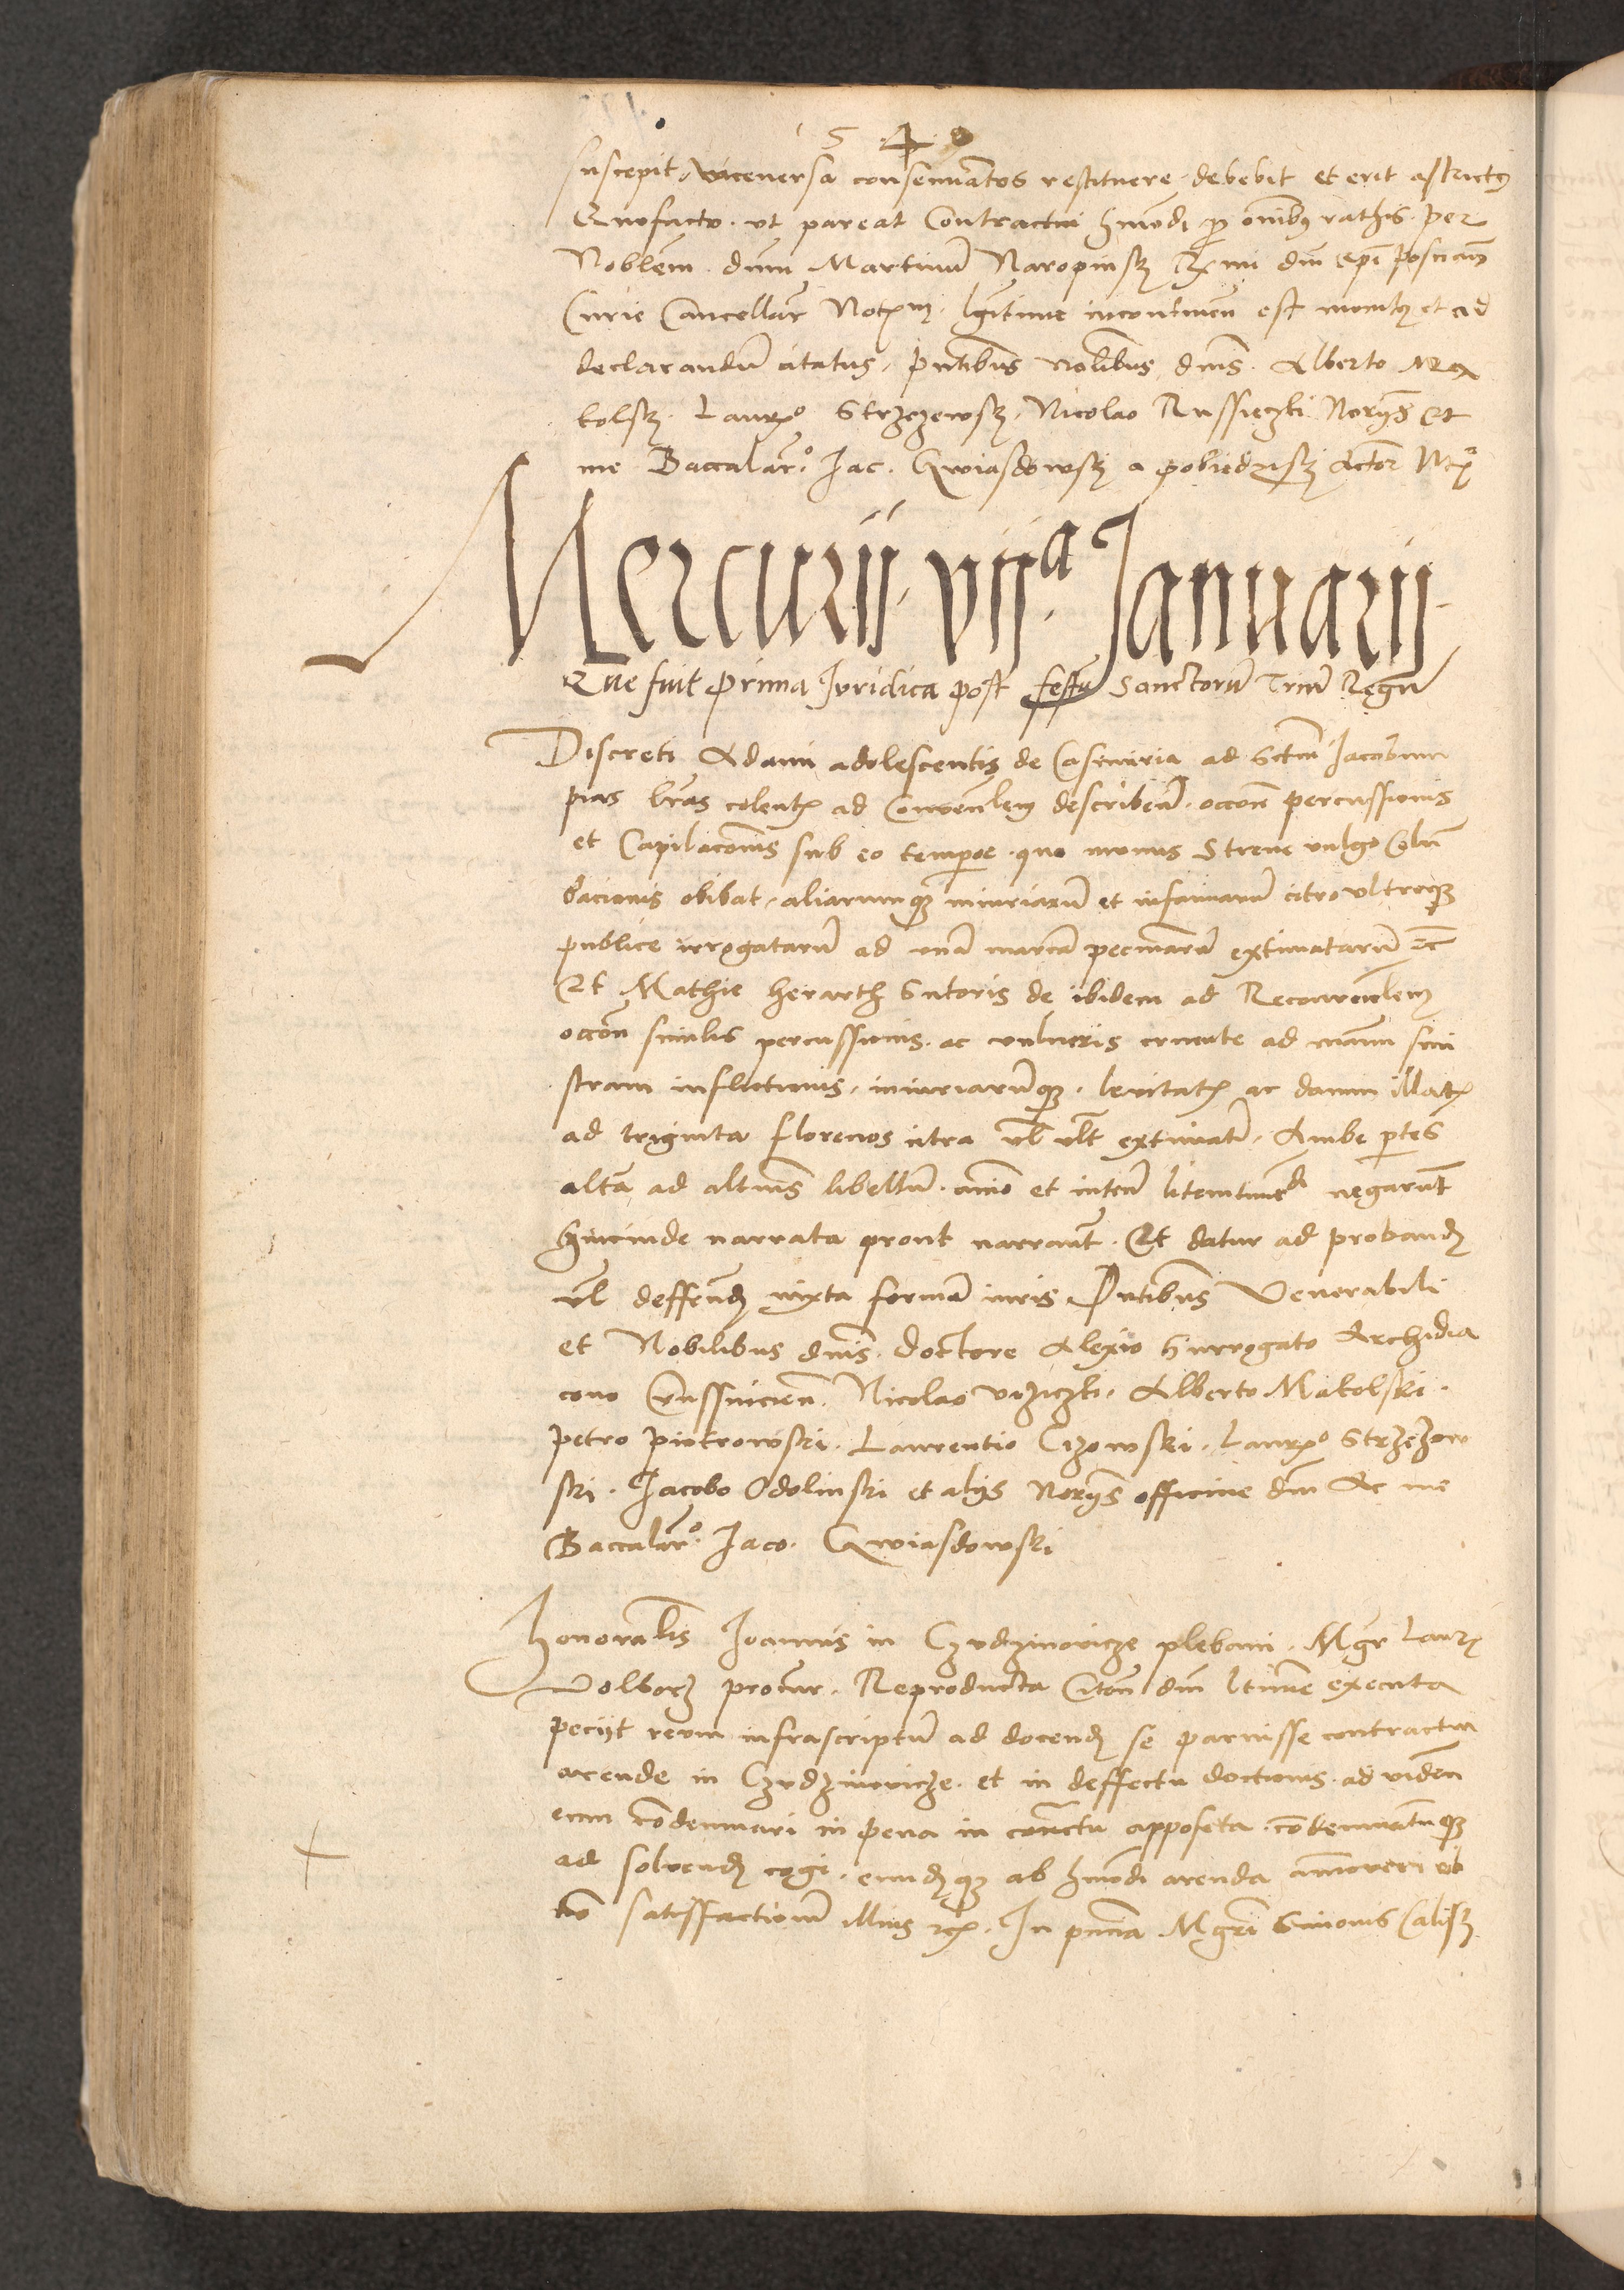 1540
suscepit, viceversa conservatos restituere debebit et erit astrictus
Quofacto. ut pareat Contractui hmodi p omnibus rathis per
Noblem. dnum Martinum Naropinsky Rmi dni Epi Posnan
Curie Cancellar Notm. lgitime incontinen est monitus et ad
declarandum citatus, pntibus noblibus dnis. Alberto Ma
kolsky. Laur° Strzezewsky. Nicolao Russieczki Norys Et
me Baccalar° Jac. Gwiasdowsky a pobiedzisky Actor Nt
Mercurii. vii.a Januarii.
Que fuit Prima Juridica post festum Sanctorum Trium Regum
Discreti Adami adolescentis de Casimiria ad Sctum Jacobum
pias lras colentis ad Convenlem describend. occone percussionis
et Capilaconis sub eo tempore quo munus Strene vulgo Colen
dacionis obibat, aliarumque iniuriarum et infamiarum citro ultroque
publice irrogatarum ad una marcam pecuniarum extimatarum etc
Et Mathie Herarth Sutoris de ibidem ad Reconvenlem
occone similis percussionis. ac vulneris cruente ad manum sini
stram inflictionis, iniuriarumque. levitatis ac damni illatis
ad triginta florenos citra vl ult extimat. Ambe ptes
altra ad altrius libellum. animo et inten litemtinue di negarunt
hincinde narrata prout narrant. Et datur ad proband
vl deffend iuxta formam iuris Pntibus Venerabili
et Nobilibus dnis. Doctore Alexio Surrogato Archidia
cono Crussvicien. Nicolao Viziczki. Alberto Makolski.
Petro Piotrowski. Laurentio Czowski. Laur° Strzezow
ski. Jacobo Odolinski et alijs Norys officine dni Ac me
Baccalar° Jaco. Gwiasdowski
Honorablis Joannis in Czudzinovicze plebani. Mgr Laur
Dolborz procur. Reproducta Citone dni ltime executa
peciit reum infrascriptum ad docend se paruisse contractui
arende in Czudzinovicze. et in deffectu doctionis. ad viden
eum condemnari in pena in contractu apposita. condemnatumque
ad solvend cogi. eundque ab hmodi arenda ammoveri ob
non satisffactionem illius etc. In pncia Mgri Simonis Calisz